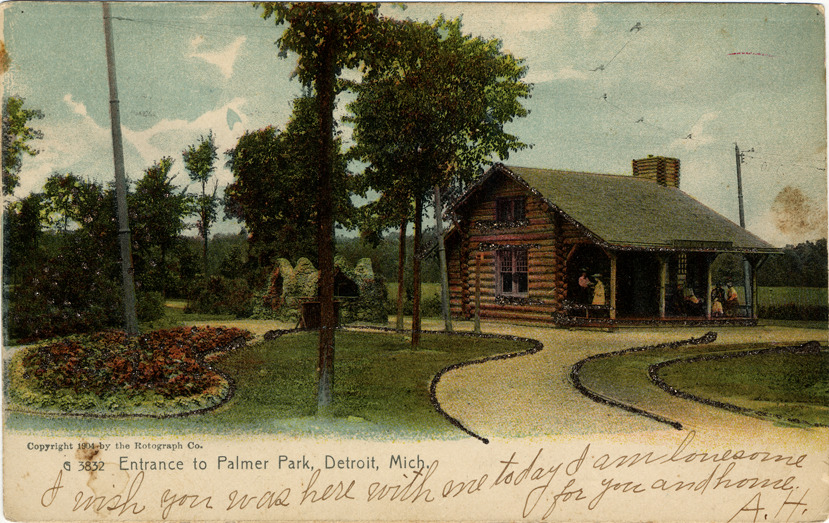 Copyright 1904 by the Rotograph Co.
G 3832 Entrance to Palmer Park, Detroit, Mich.
I wish you was here with me today I am lonesome
for you and home.
A. H.